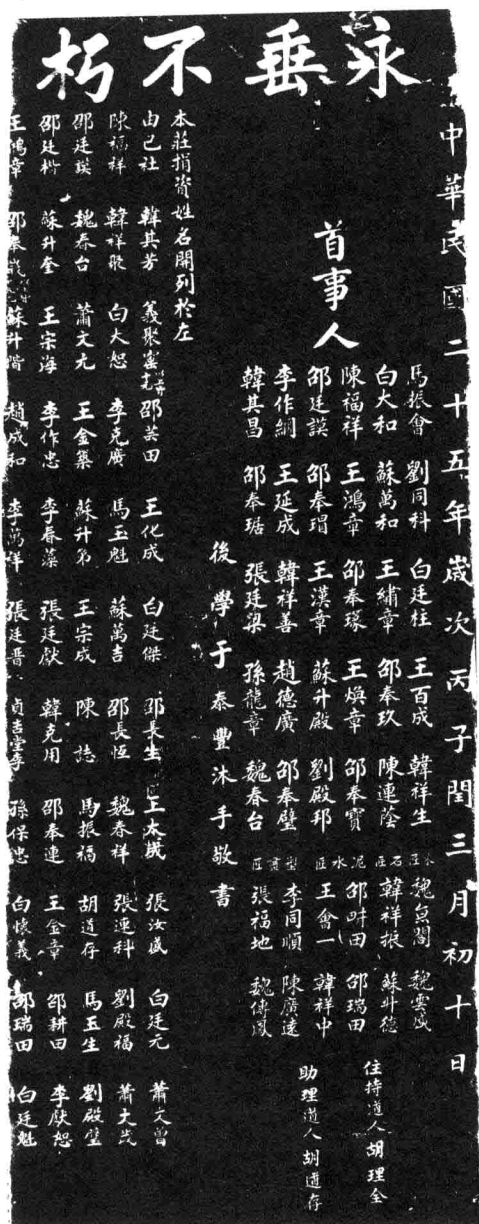 永垂不朽
中華民國二十五年歲次丙子閏三月初十日
首事人
馬振會 劉同科 白廷柱 王百成 韓祥生
白大和 蘇萬和 王繡章 邵奉玖 陳連蔭
陳福祥 王鴻章 邵奉琢 王煥章 邵奉寶
邵廷謨 邵奉瑁 王漢章 蘇升殿 劉殿邦
李作綱 王延成 韓祥善 趙德廣 邵奉璧
韓其昌 邵奉琚 張廷梁 孫龍章 魏春台
木匠 魏魚閣 魏雲成
石匠 韓祥振 蘇升德
泥水匠 邵田 邵瑞田
王會一 韓祥中
塑畫匠 李同順 陳廣達
張福地 魏傳鳳
住持道人胡理全
助理道人胡道存
後學于泰豐沐手敬書
本莊捐資姓名開列於左
由己社 韓其芳 義聚窰 邵芸田 王化成 白廷傑 邵長生 王太成 張汝盛 白廷元 蕭文曾
陳福祥 韓祥聚 白大恕 李克廣 馬玉魁 蘇萬吉 邵長恆 魏春祥 張連科 劉殿福 蕭大
邵廷謨 魏春台 蕭文元 王金集 蘇升第 王宗成 陳誌 馬振福 胡道存 馬玉生 劉殿璽
邵廷彬 蘇升奎 王宗海 李作忠 李春藻 張廷獻 韓克用 邵奉連 王金章 邵耕田 李獻恕
王鴻章 邵奉 蘇升階 趙成和 李萬祥 張廷晋 貞吉堂李 孫保忠 白懷義 邵瑞田 白廷魁